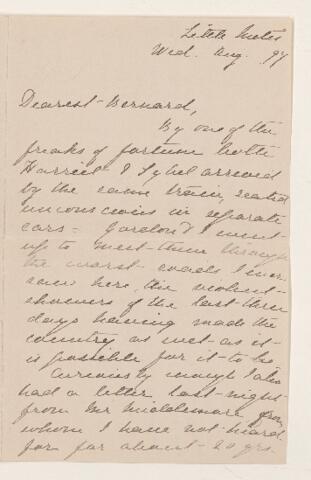 Little Metis
Wed. Aug. 97
Dearest Bernard,
By one of the
freaks of fortune both
Harriet & Sybil arrived
by the same train, seated
unconscious in separate
cars = Gordon & I went
up to meet them through
the worst roads I ever
saw here, the violent
showers of the last three
days having made the
country as wet as it
is possible for it to be
Curiously enough I also
had a letter last night
from Mr Middlemore from
whom I have not heard
for for about 20 yrs.